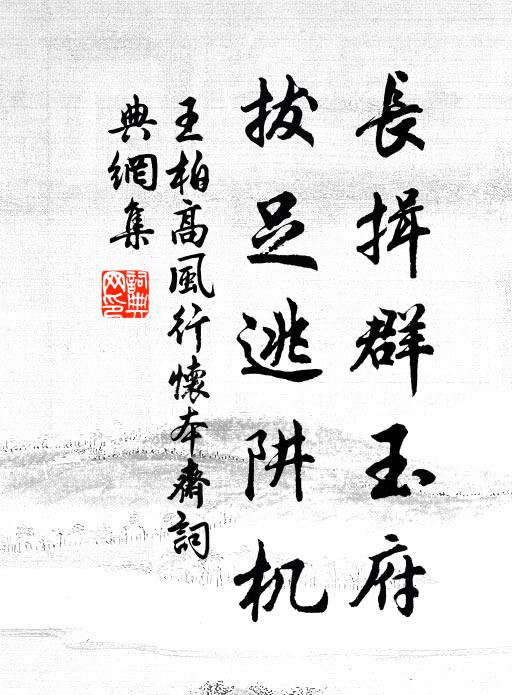 長揖群玉府
拔足逃阱机
王柏高風行懷本齋詞
典網集
詞典網印